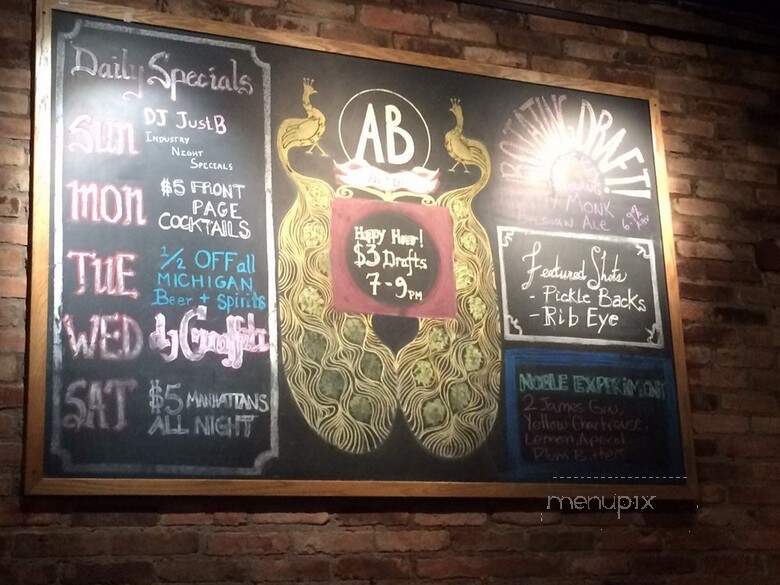 Daily Specials
SUN
DJ JustB
Industry
Night
Specials
MON
$5 FRONT
PAGE
COCKTAILS
TUE
1/2 OFF all
MICHIGAN
Beer + Spirits
WED
dj
SAT
$5 MANHATTANS
ALL NIGHT
AB
Happy Hour!
$3 Drafts
7-9PM
ROTATING DRAFT!
MONK
ALE
Featured Shots
- Pickle Backs
- Rib Eye
NOBLE EXPERIMENT
2 James Gin,
Yellow Chartreuse,
Lemon, Aperol
Plum Bitters
menupix